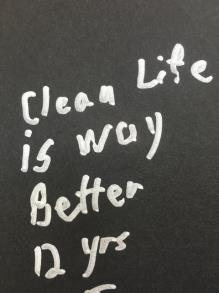 Clean Life
is way
Better
12 yrs